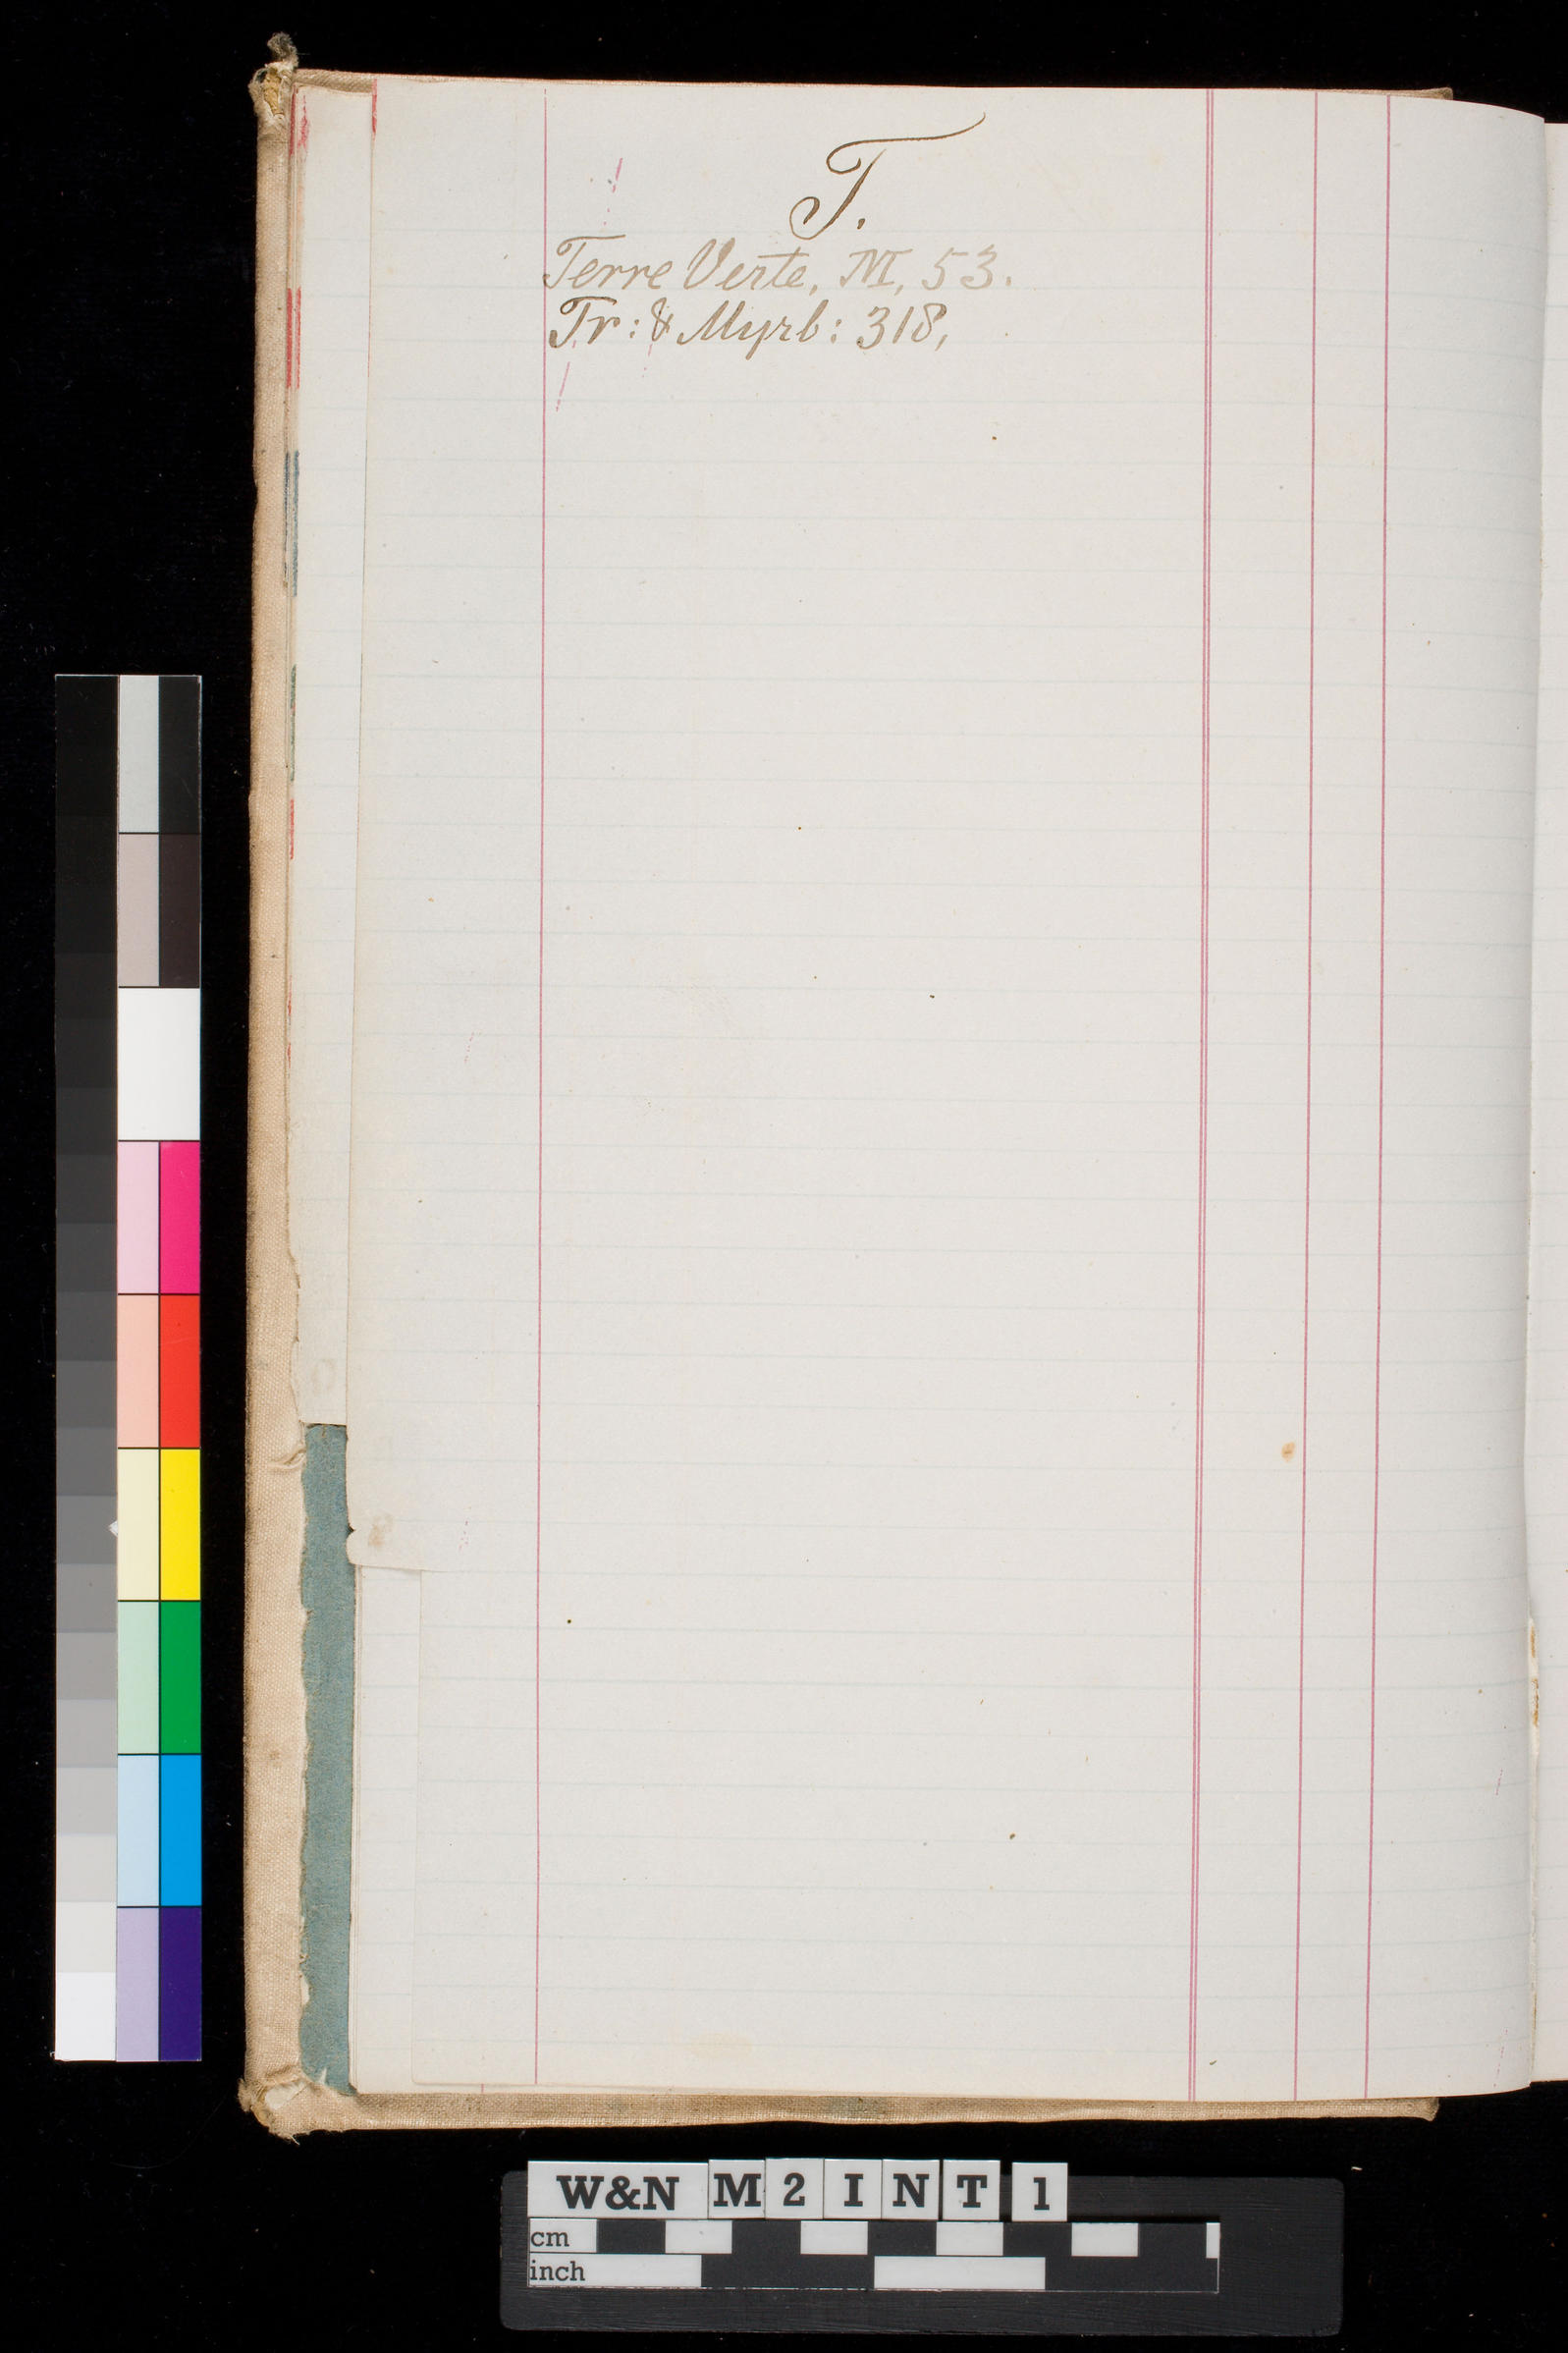 T.
Terre Verte, M, 53.
Tr: & Myrb: 318,
W&N M2INT1
cm
inch